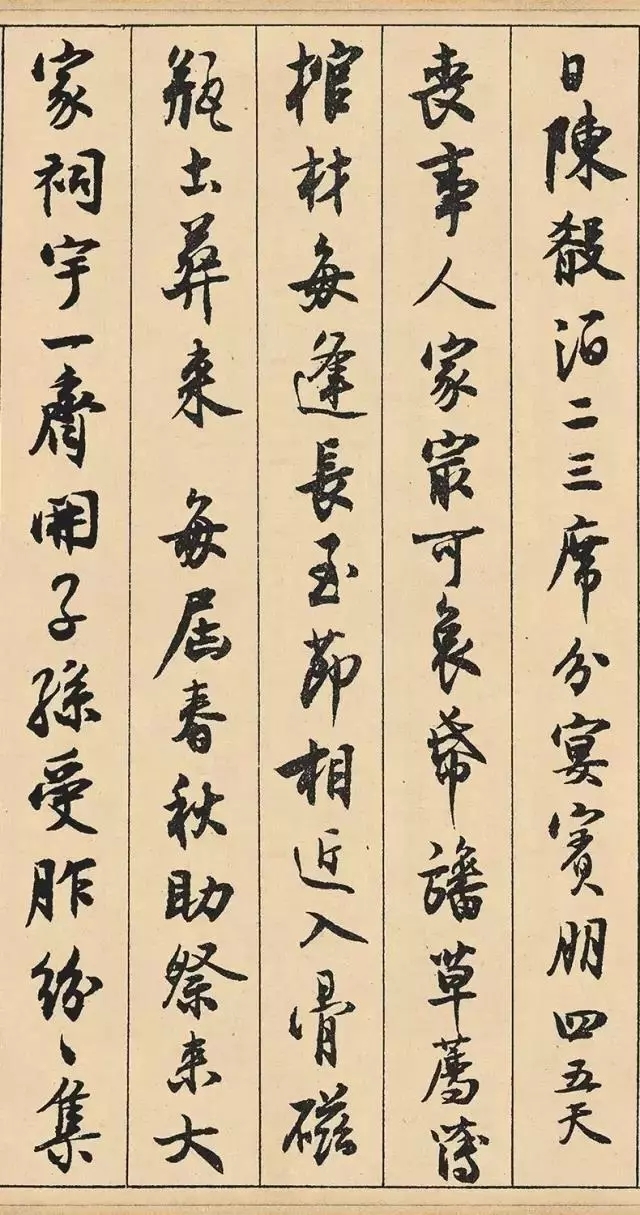 日陳殽酒二三席分宴賓朋四五天
喪事人家㝡可哀帋旛草薦薄
棺材每逢長至節相近入骨磁
瓶土葬来 每屆春秋助祭来大
家祠宇一齊開子孫受胙紛〻集